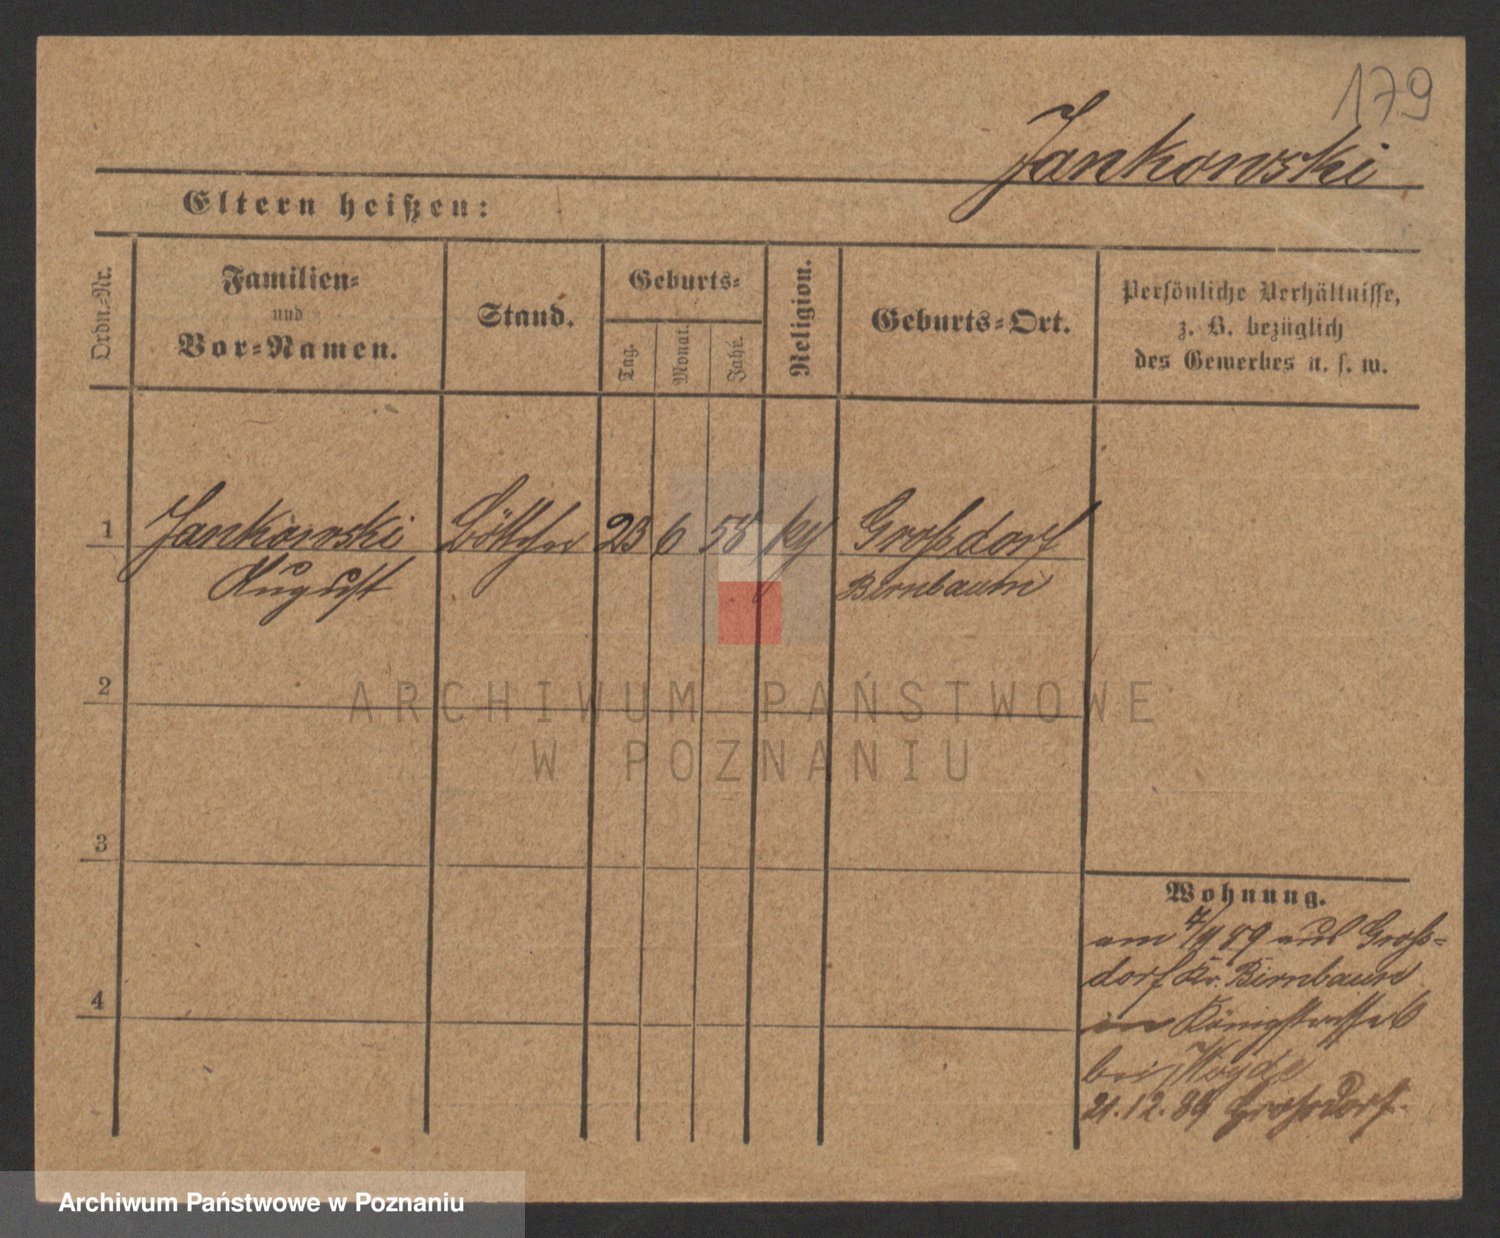 179
Jankowski
Eltern heißen:
Ordn.-Nr.
Familien-
und
Vor-Namen.
Stand.
Geburts-
Tag.
Monat.
Jahr.
Religion.
Geburts-Ort.
Persönliche Verhältnisse,
z. B. bezüglich
des Gewerbes u. s. w.
1 Jankowski Böttcher 23 6 58 Großdorf
August Birnbaum
2
ARCHIWUM PAŃSTWOWE
W POZNANIU
3
4
Wohnung.
am 7/11 89 aus Groß-
dorf Kr. Birnbaum
in Königstrasse 6
bei Woyde
21.12.89 Großdorf.
Archiwum Państwowe w Poznaniu